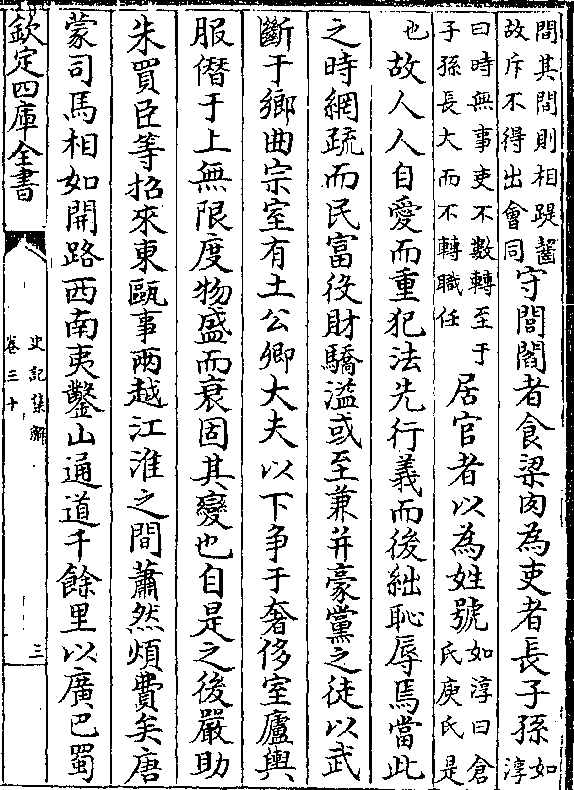 間其間則相踶齧
故斥不得出會同
守閭閻者食梁肉為吏者長子孫
如淳
曰時無事吏不數轉至于
子孫長大而不轉職任
居官者以為姓號
如淳曰倉
氏庾氏是
也
故人人自愛而重犯法先行義而後絀恥辱焉當此
之時網疏而民富役財驕溢或至兼并豪黨之徒以武
斷于鄉曲宗室有土公卿大夫以下争于奢侈室廬輿
服僭于上無限度物盛而衰固其變也自是之後嚴助
朱買臣等招來東甌事兩越江淮之間蕭然煩費矣唐
蒙司馬相如開路西南夷鑿山通道千餘里以廣巴蜀
欽定四庫全書
史記集解
卷三十
三